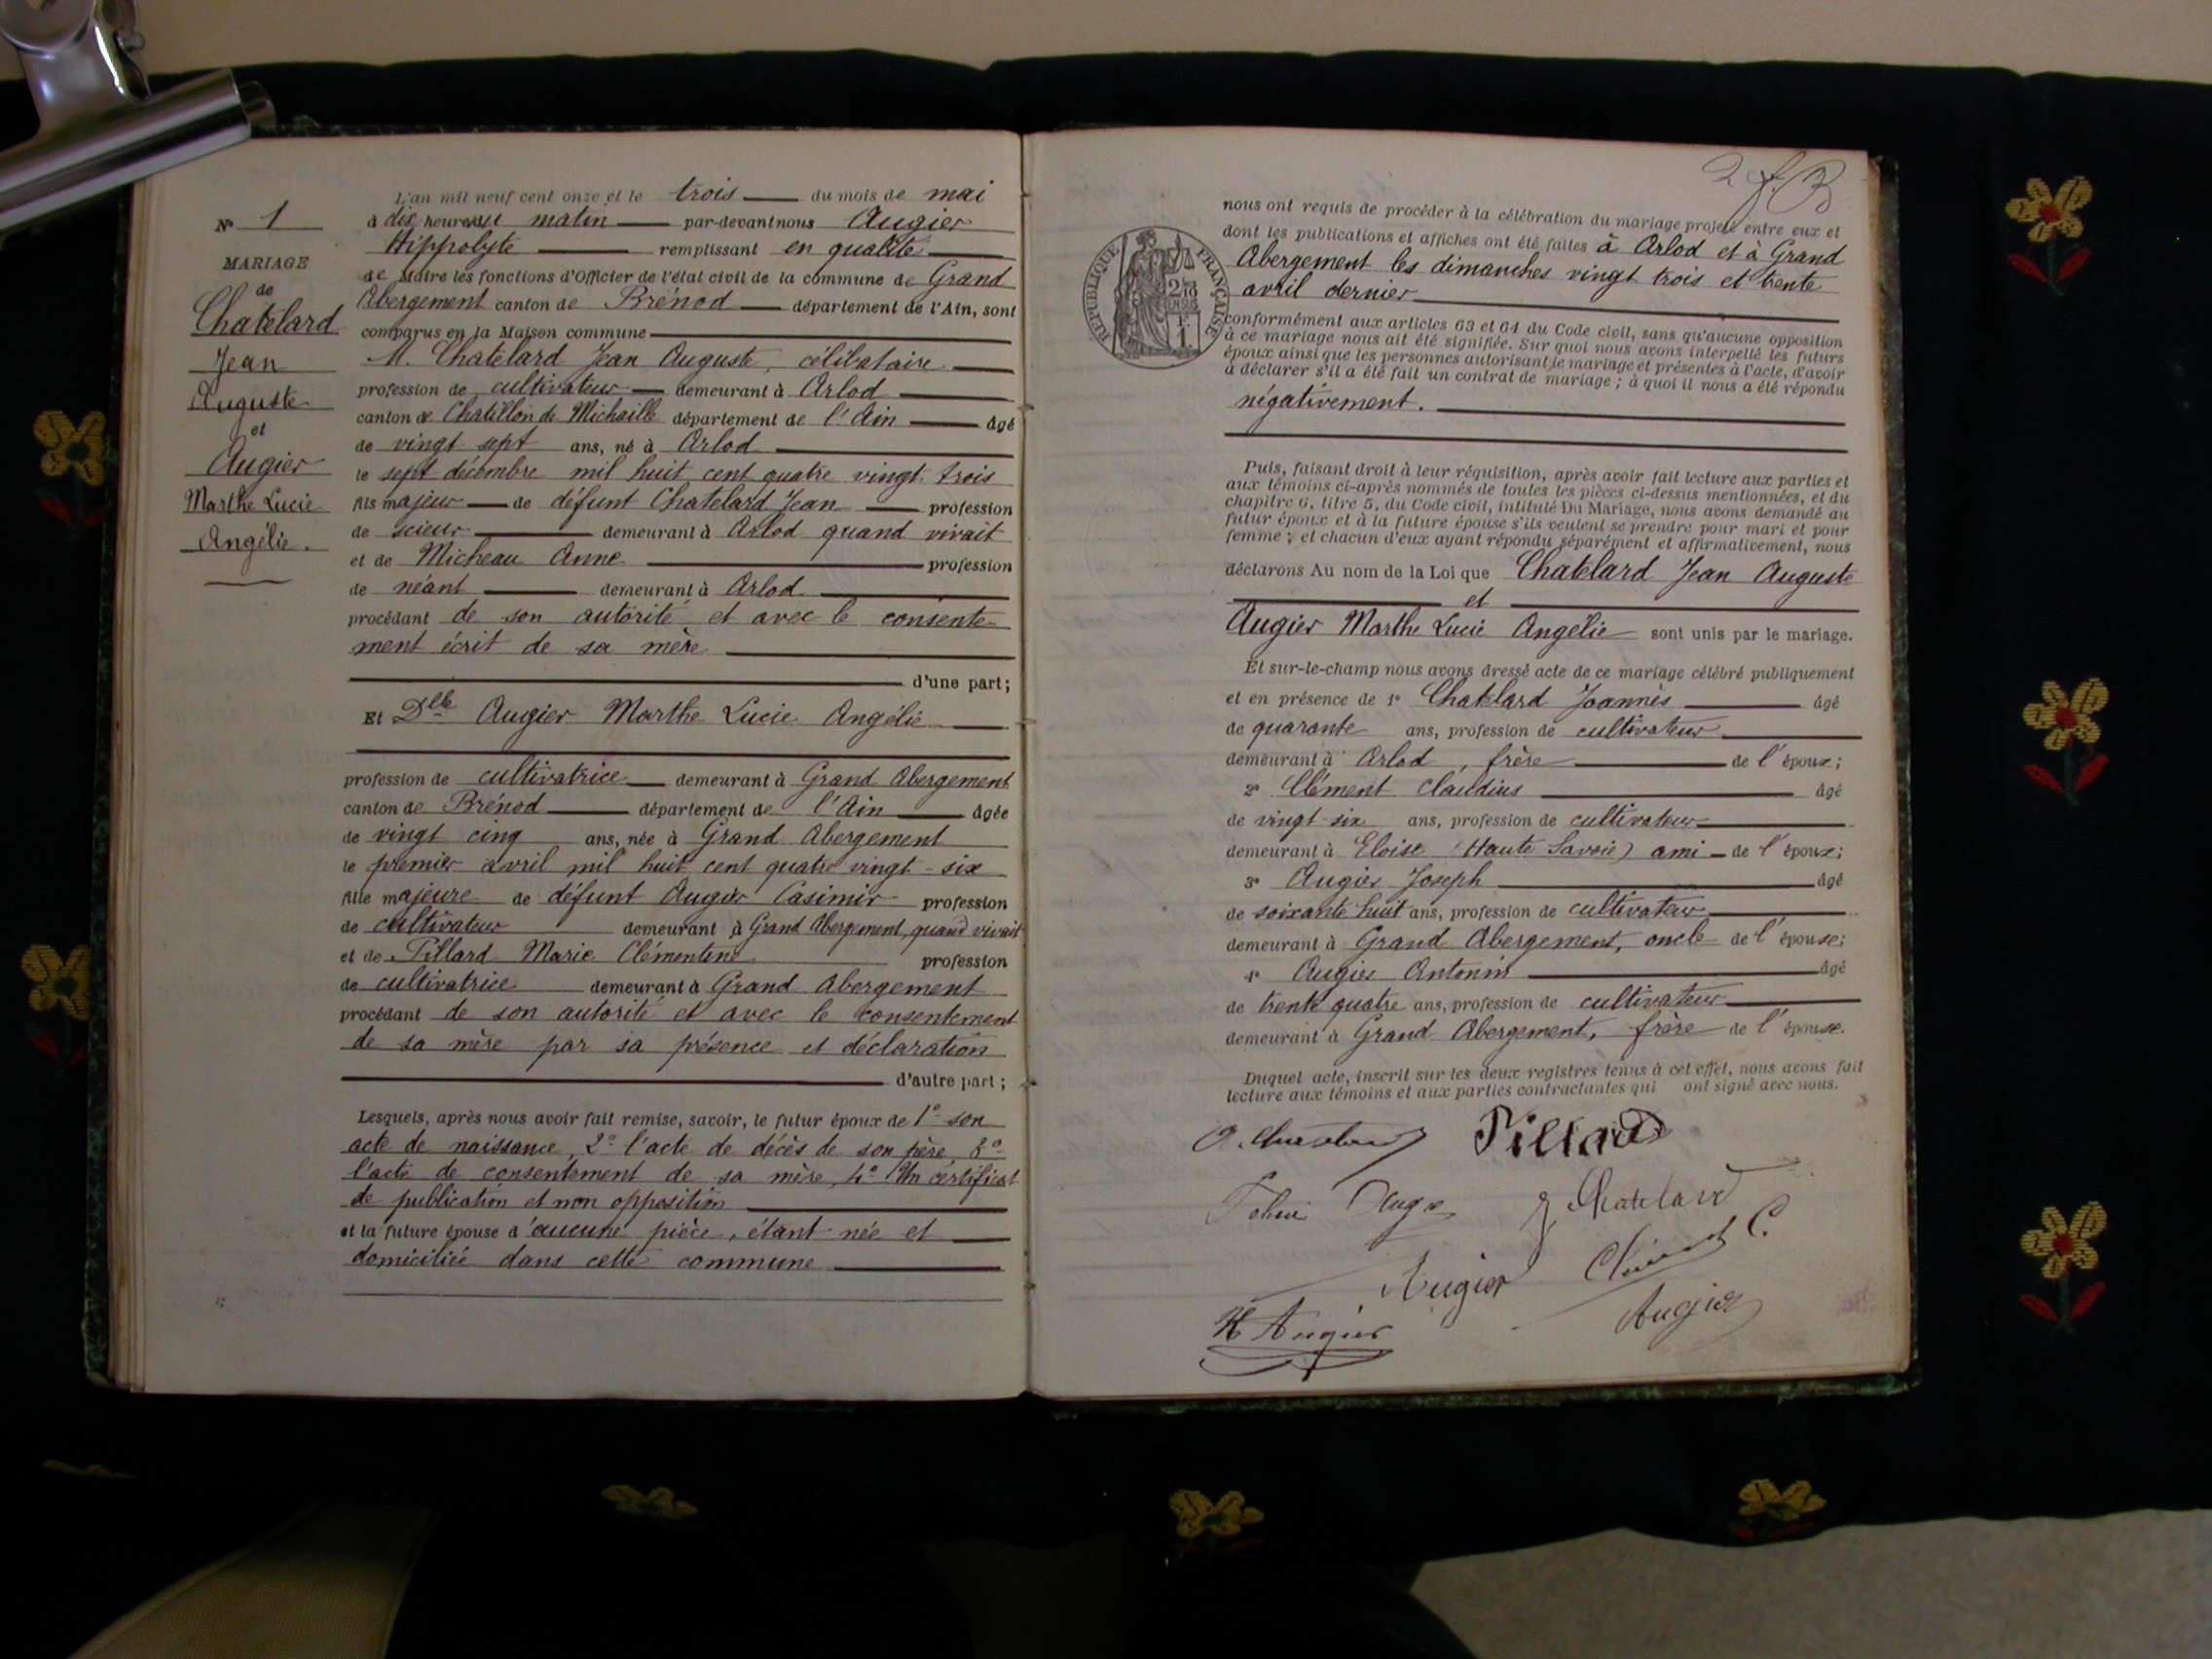 N° 1
MARIAGE
de
Chatelard
Jean
Auguste
et
Augier
Marthe Lucie
Angélie.
L'an mil neuf cent onze et le trois du mois de mai
à dix heures du matin par-devant nous Augier
Hippolyte remplissant en qualité
de Maire les fonctions d'Officier de l'état civil de la commune de Grand
Abergement canton de Brénod département de l'Ain, sont
comparus en la Maison commune
M. Chatelard Jean Auguste, célibataire
profession de cultivateur demeurant à Arlod
canton de Chatillon de Michaille département de l'Ain âgé
de vingt sept ans, né à Arlod
le sept décembre mil huit cent quatre vingt trois
fils majeur de défunt Chatelard Jean profession
de scieur demeurant à Arlod quand vivait
et de Micheau Anne profession
de néant demeurant à Arlod
procédant de son autorité et avec le consente-
ment écrit de sa mère
d'une part;
Et Dlle Augier Marthe Lucie Angélie
profession de cultivatrice demeurant à Grand Abergement
canton de Brénod département de l'Ain âgée
de vingt cinq ans, née à Grand Abergement
le premier avril mil huit cent quatre vingt-six
fille majeure de défunt Augier Casimir profession
de cultivateur demeurant à Grand Abergement, quand vivait
et de Pillard Marie Clémentine profession
de cultivatrice demeurant à Grand Abergement
procédant de son autorité et avec le consentement
de sa mère par sa présence et déclaration
d'autre part;
Lesquels, après nous avoir fait remise, savoir, le futur époux de 1° son
acte de naissance, 2° l'acte de décès de son père, 3°
l'acte de consentement de sa mère, 4° Un certificat
de publication et non opposition
et la future épouse d'aucune pièce, étant née et
domiciliée dans cette commune
nous ont requis de procéder à la célébration du mariage projeté entre eux et
dont les publications et affiches ont été faites à Arlod et à Grand
Abergement les dimanches vingt trois et trente
avril dernier
RÉPUBLIQUE FRANÇAISE
conformément aux articles 63 et 64 du Code civil, sans qu'aucune opposition
à ce mariage nous ait été signifiée. Sur quoi nous avons interpellé les futurs
époux ainsi que les personnes autorisant le mariage et présentes à l'acte, d'avoir
à déclarer s'il a été fait un contrat de mariage; à quoi il nous a été répondu
négativement.
Puis, faisant droit à leur réquisition, après avoir fait lecture aux parties et
aux témoins ci-après nommés de toutes les pièces ci-dessus mentionnées, et du
chapitre 6, titre 5, du Code civil, intitulé Du Mariage, nous avons demandé au
futur époux et à la future épouse s'ils veulent se prendre pour mari et pour
femme; et chacun d'eux ayant répondu séparément et affirmativement, nous
déclarons Au nom de la Loi que Chatelard Jean Auguste
et
Augier Marthe Lucie Angélie sont unis par le mariage.
Et sur-le-champ nous avons dressé acte de ce mariage célébré publiquement
et en présence de 1° Chatelard Joannès âgé
de quarante ans, profession de cultivateur
demeurant à Arlod, frère de l'époux;
2° Clément Claudius âgé
de vingt-six ans, profession de cultivateur
demeurant à Eloise (Haute Savoie) ami de l'époux;
3° Augier Joseph âgé
de soixante huit ans, profession de cultivateur
demeurant à Grand Abergement, oncle de l'épouse;
4° Augier Antonin âgé
de trente quatre ans, profession de cultivateur
demeurant à Grand Abergement, frère de l'épouse.
Duquel acte, inscrit sur les deux registres tenus à cet effet, nous avons fait
lecture aux témoins et aux parties contractantes qui ont signé avec nous.
Pillard
J Chatelard
Augier
H Augier
Augier